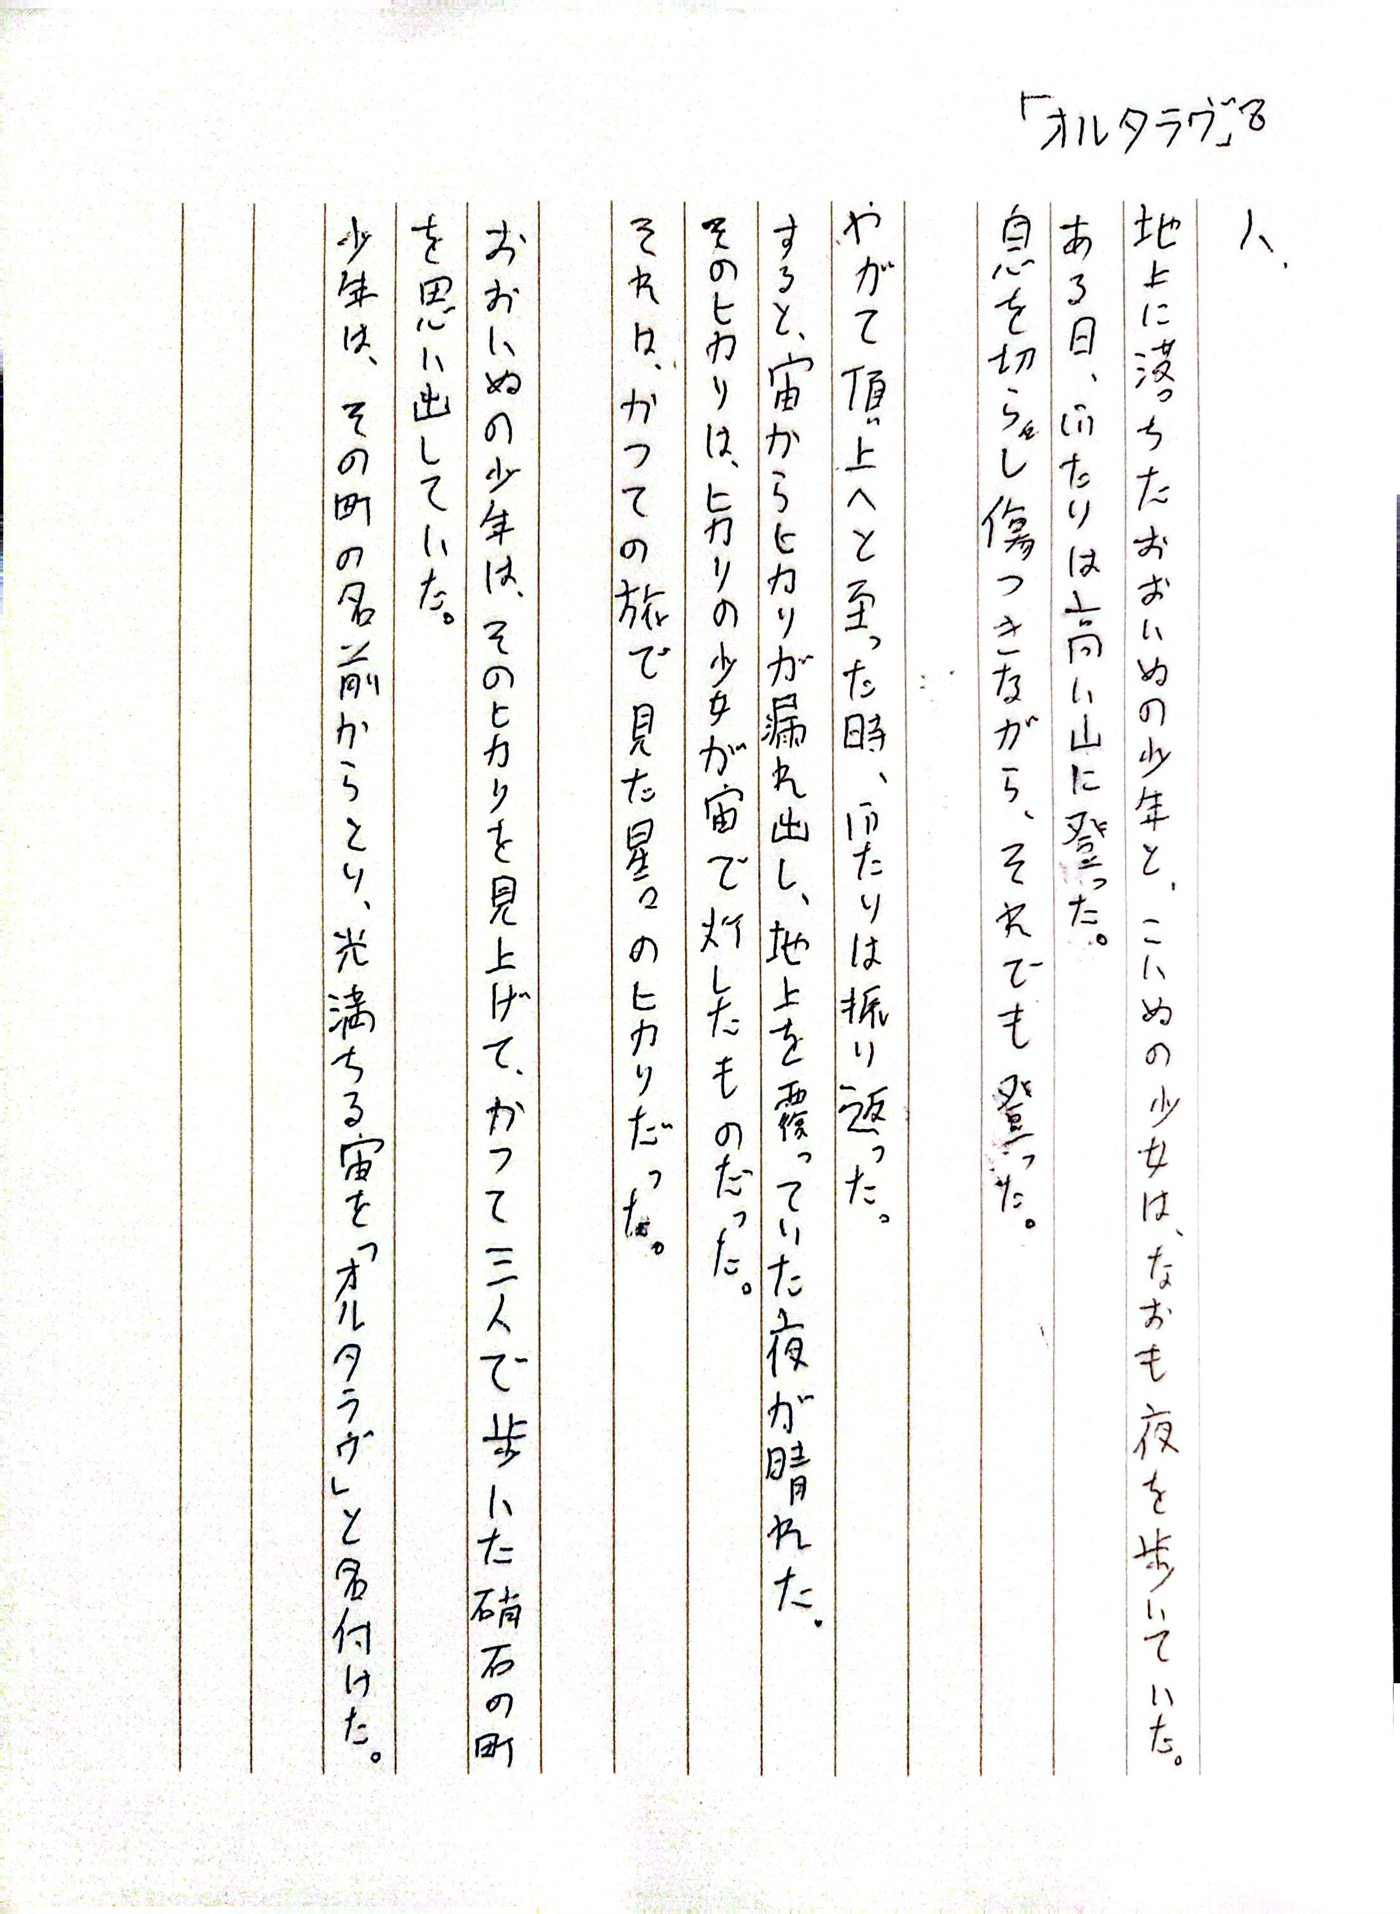 「オルタラヴ」8
八、
地上に落ちたおおいぬの少年と、こいぬの少女は、なおも夜を歩いていた。
ある日、ふたりは高い山に登った。
息を切らし傷つきながら、それでも登った。
やがて頂上へと至った時、ふたりは振り返った。
すると、宙からヒカリが漏れ出し、地上を覆っていた夜が晴れた。
そのヒカリは、ヒカリの少女が宙で灯したものだった。
それは、かつての旅で見た星々のヒカリだった。
おおいぬの少年は、そのヒカリを見上げて、かつて三人で歩いた硝石の町
を思い出していた。
少年は、その町の名前からとり、光満ちる宙を「オルタラヴ」と名付けた。